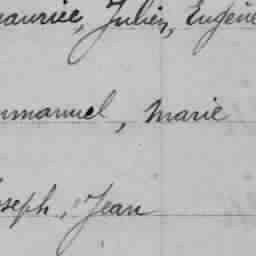 Maurice, Julien, Eugène
Emmanuel, Marie
Joseph, Jean